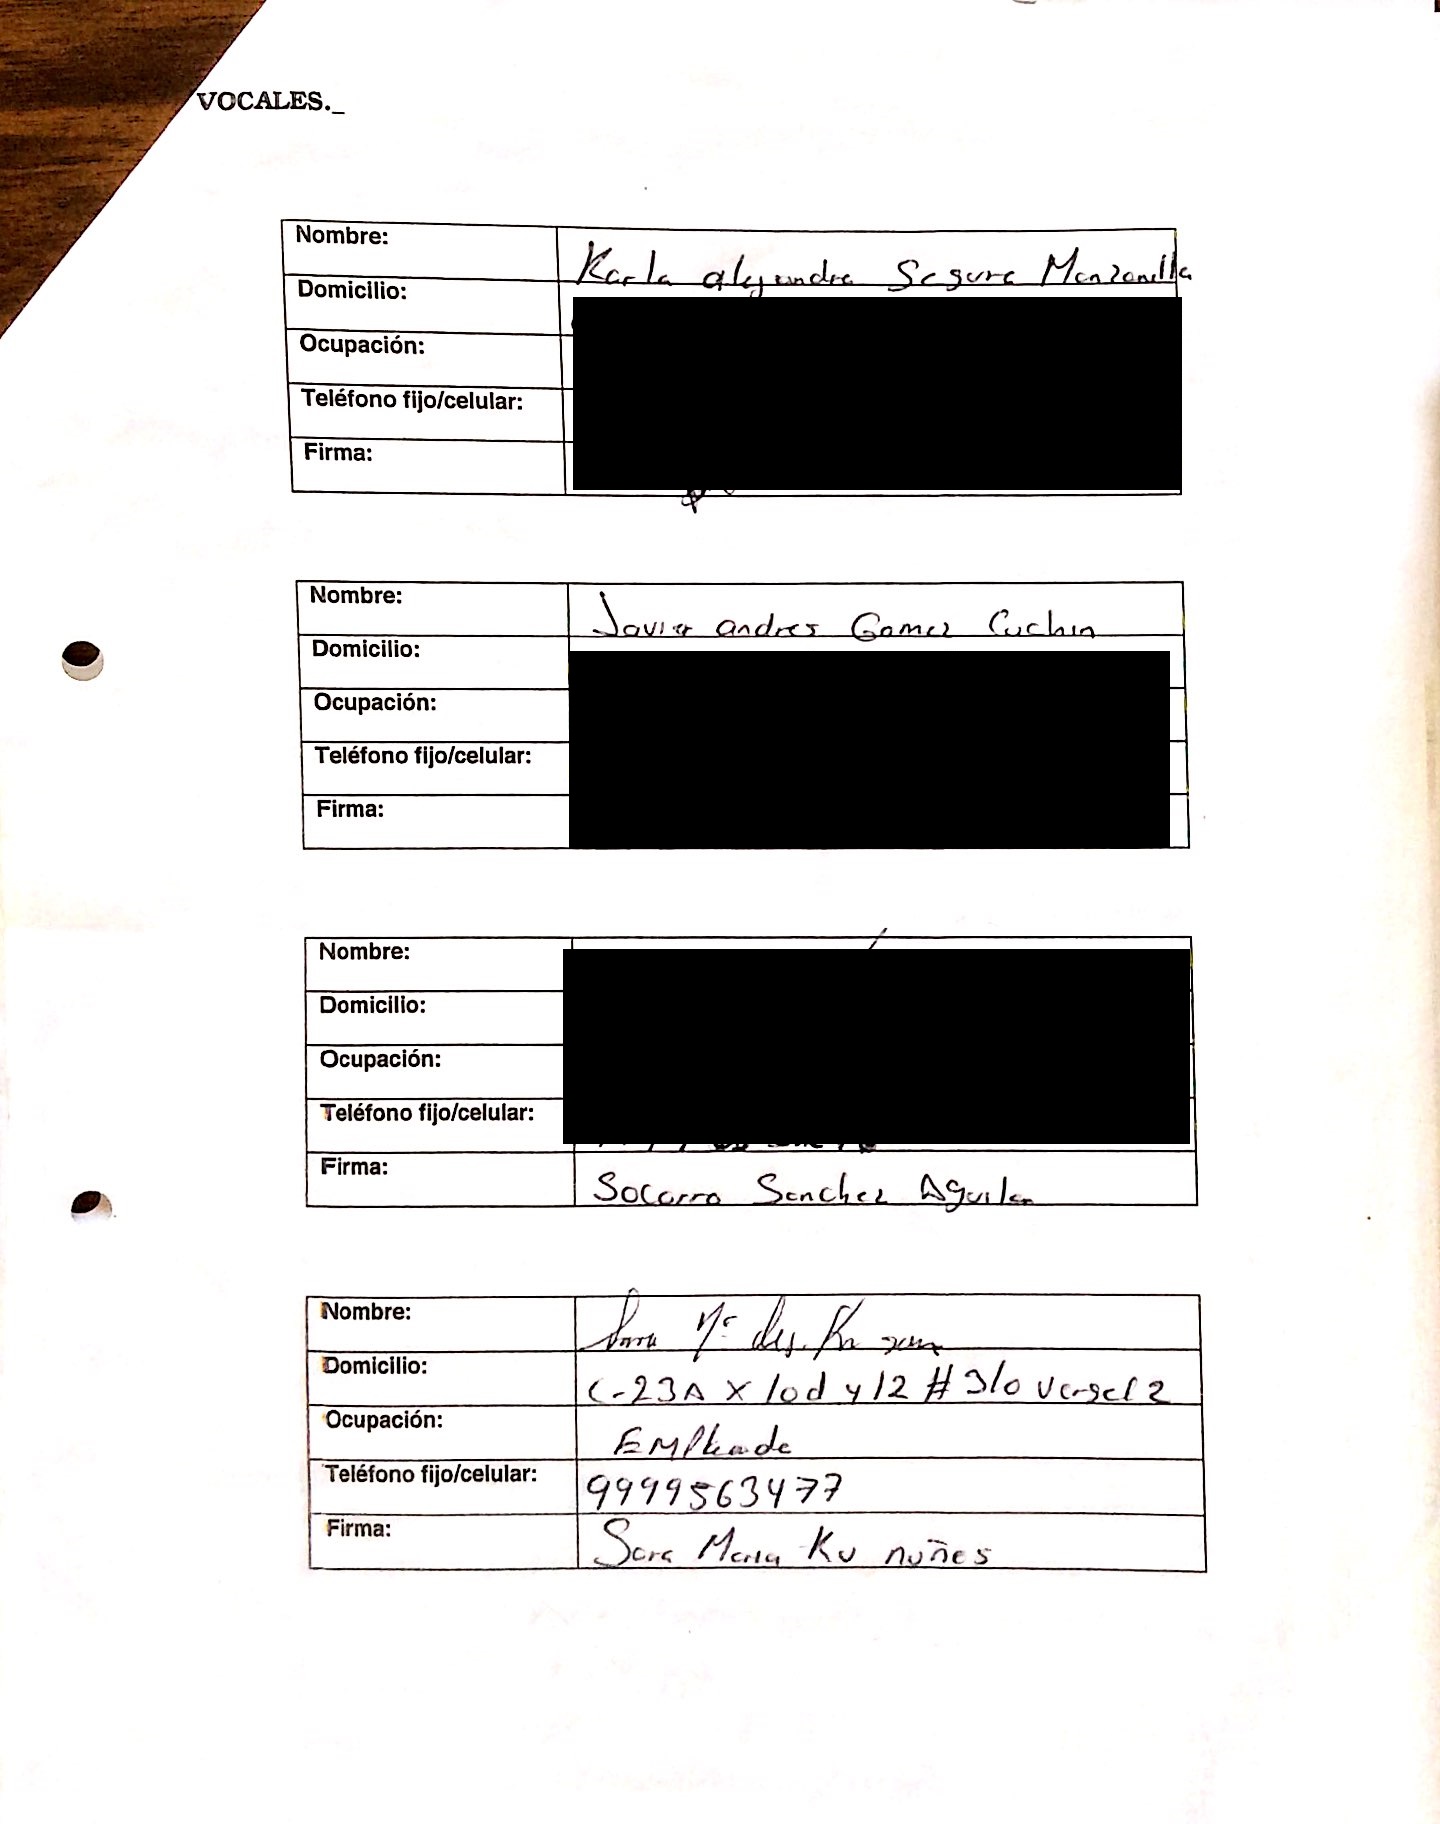 VOCALES._
Nombre: Karla alejandra Segura Manzanilla
Domicilio:
Ocupación:
Teléfono fijo/celular:
Firma:
Nombre: Javier andres Gomez Cuchin
Domicilio:
Ocupación:
Teléfono fijo/celular:
Firma:
Nombre:
Domicilio:
Ocupación:
Teléfono fijo/celular:
Firma: Socorro Sanchez Aguilar
Nombre:
Domicilio: C-23A x 10d y 12 # 310 Vergel 2
Ocupación: EMPleada
Teléfono fijo/celular: 9999563477
Firma: Sara Maria Ku nuñes